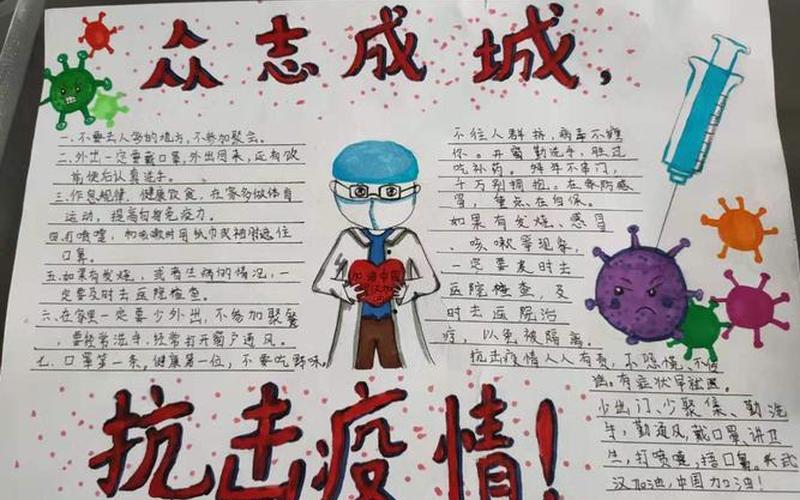 众志成城,
一.不要去人多的地方,不参加聚会。
二.外出一定要戴口罩,外出回来,还有饮
前便后认真洗手。
三.作息规律,健康饮食,在家多做体育
运动,提高自身免疫力。
四.打喷嚏,和咳嗽时用纸巾或袖肘遮住
口鼻。
五.如果有发烧,或者生病的情况,一
定要及时去医院检查。
六.在家里一定要少外出,不参加聚餐,
要经常洗手,经常打开窗户通风。
七.口罩第一条,健康第一位,不要吃野味
加油中国
不往人群挤,病毒不
你。开窗勤洗手,胜过
吃补药。拜年不串门,
千万别拥抱。在家防感
冒,重点在自保。
如果有发烧、感冒
、咳嗽等现象,
一定要及时去
医院检查,及
时去医院治
疗,以免被隔离。
抗击疫情人人有责,不恐慌、不
有症状早就医。
少出门、少聚集、勤洗
手,勤通风,戴口罩、讲卫
生,打喷嚏,捂口鼻。天武
汉加油,中国加油!
抗击疫情!